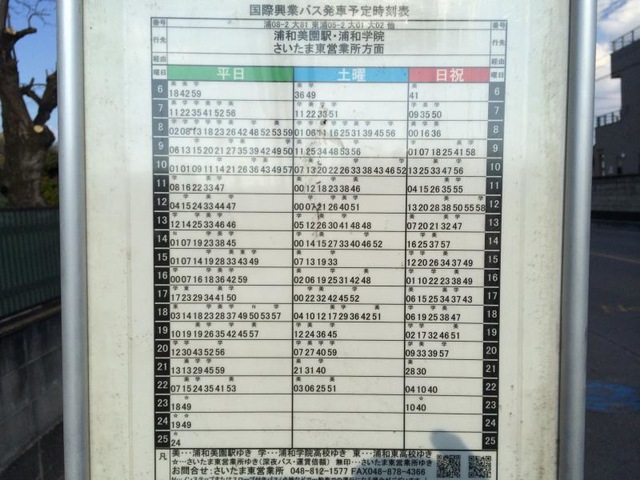 国際興業バス発車予定時刻表
番号 浦08-2 大81 東浦05-2 大01 大02 他 番号
行先 浦和美園駅・浦和学院 行先
経由 さいたま東営業所方面 経由
曜日 平日 土曜 日祝 曜日
6 184259 3649 41 6
7 11223541525 6 11223351 093550 7
8 01 06 11 16 25 31 39 45 56 001636 8
9 06 13 15 20 21 27 35 39 42 49 50 11 25 34 48 53 56 01 07 18 25 41 58 9
10 01 01 09 11 14 21 26 36 43 49 57 07 13 20 22 26 38 43 46 52 13 25 33 47 56 10
11 08 16 22 33 47 00 12 18 23 38 46 04 15 26 35 55 11
12 04 15 24 33 44 47 13 20 28 38 50 55 58 12
13 12 14 25 33 46 46 05 12 26 30 41 48 48 07 20 21 32 47 13
14 01 07 19 23 38 45 00 14 15 27 33 40 46 52 16 25 37 57 14
15 01 07 14 19 28 33 43 49 07 13 19 33 12 20 26 34 37 49 15
16 00 07 16 18 36 42 59 02 06 19 25 31 42 48 01 10 22 23 38 49 16
17 17 23 29 34 41 50 00 22 32 42 45 52 06 15 25 34 37 43 17
18 03 14 18 23 28 37 49 50 53 57 04 10 12 17 29 36 42 51 06 19 25 38 47 18
19 10 19 19 26 35 42 45 57 12 24 36 45 02 17 32 46 51 19
20 12 30 43 52 56 07 27 40 59 09 33 39 57 20
21 13 13 29 45 59 21 31 40 28 30 21
22 07 15 24 35 41 53 03 06 25 51 04 10 40 22
23 18 49 10 40 23
24 19 49 24
25 24 25
凡 美…浦和美園駅ゆき 学…浦和学院高校ゆき 東…浦和東高校ゆき
☆…さいたま東営業所ゆき(深夜バス・運賃倍額) 無印…さいたま東営業所ゆき
お問合せ：さいたま東営業所 048-812-1577 FAX048-878-4366